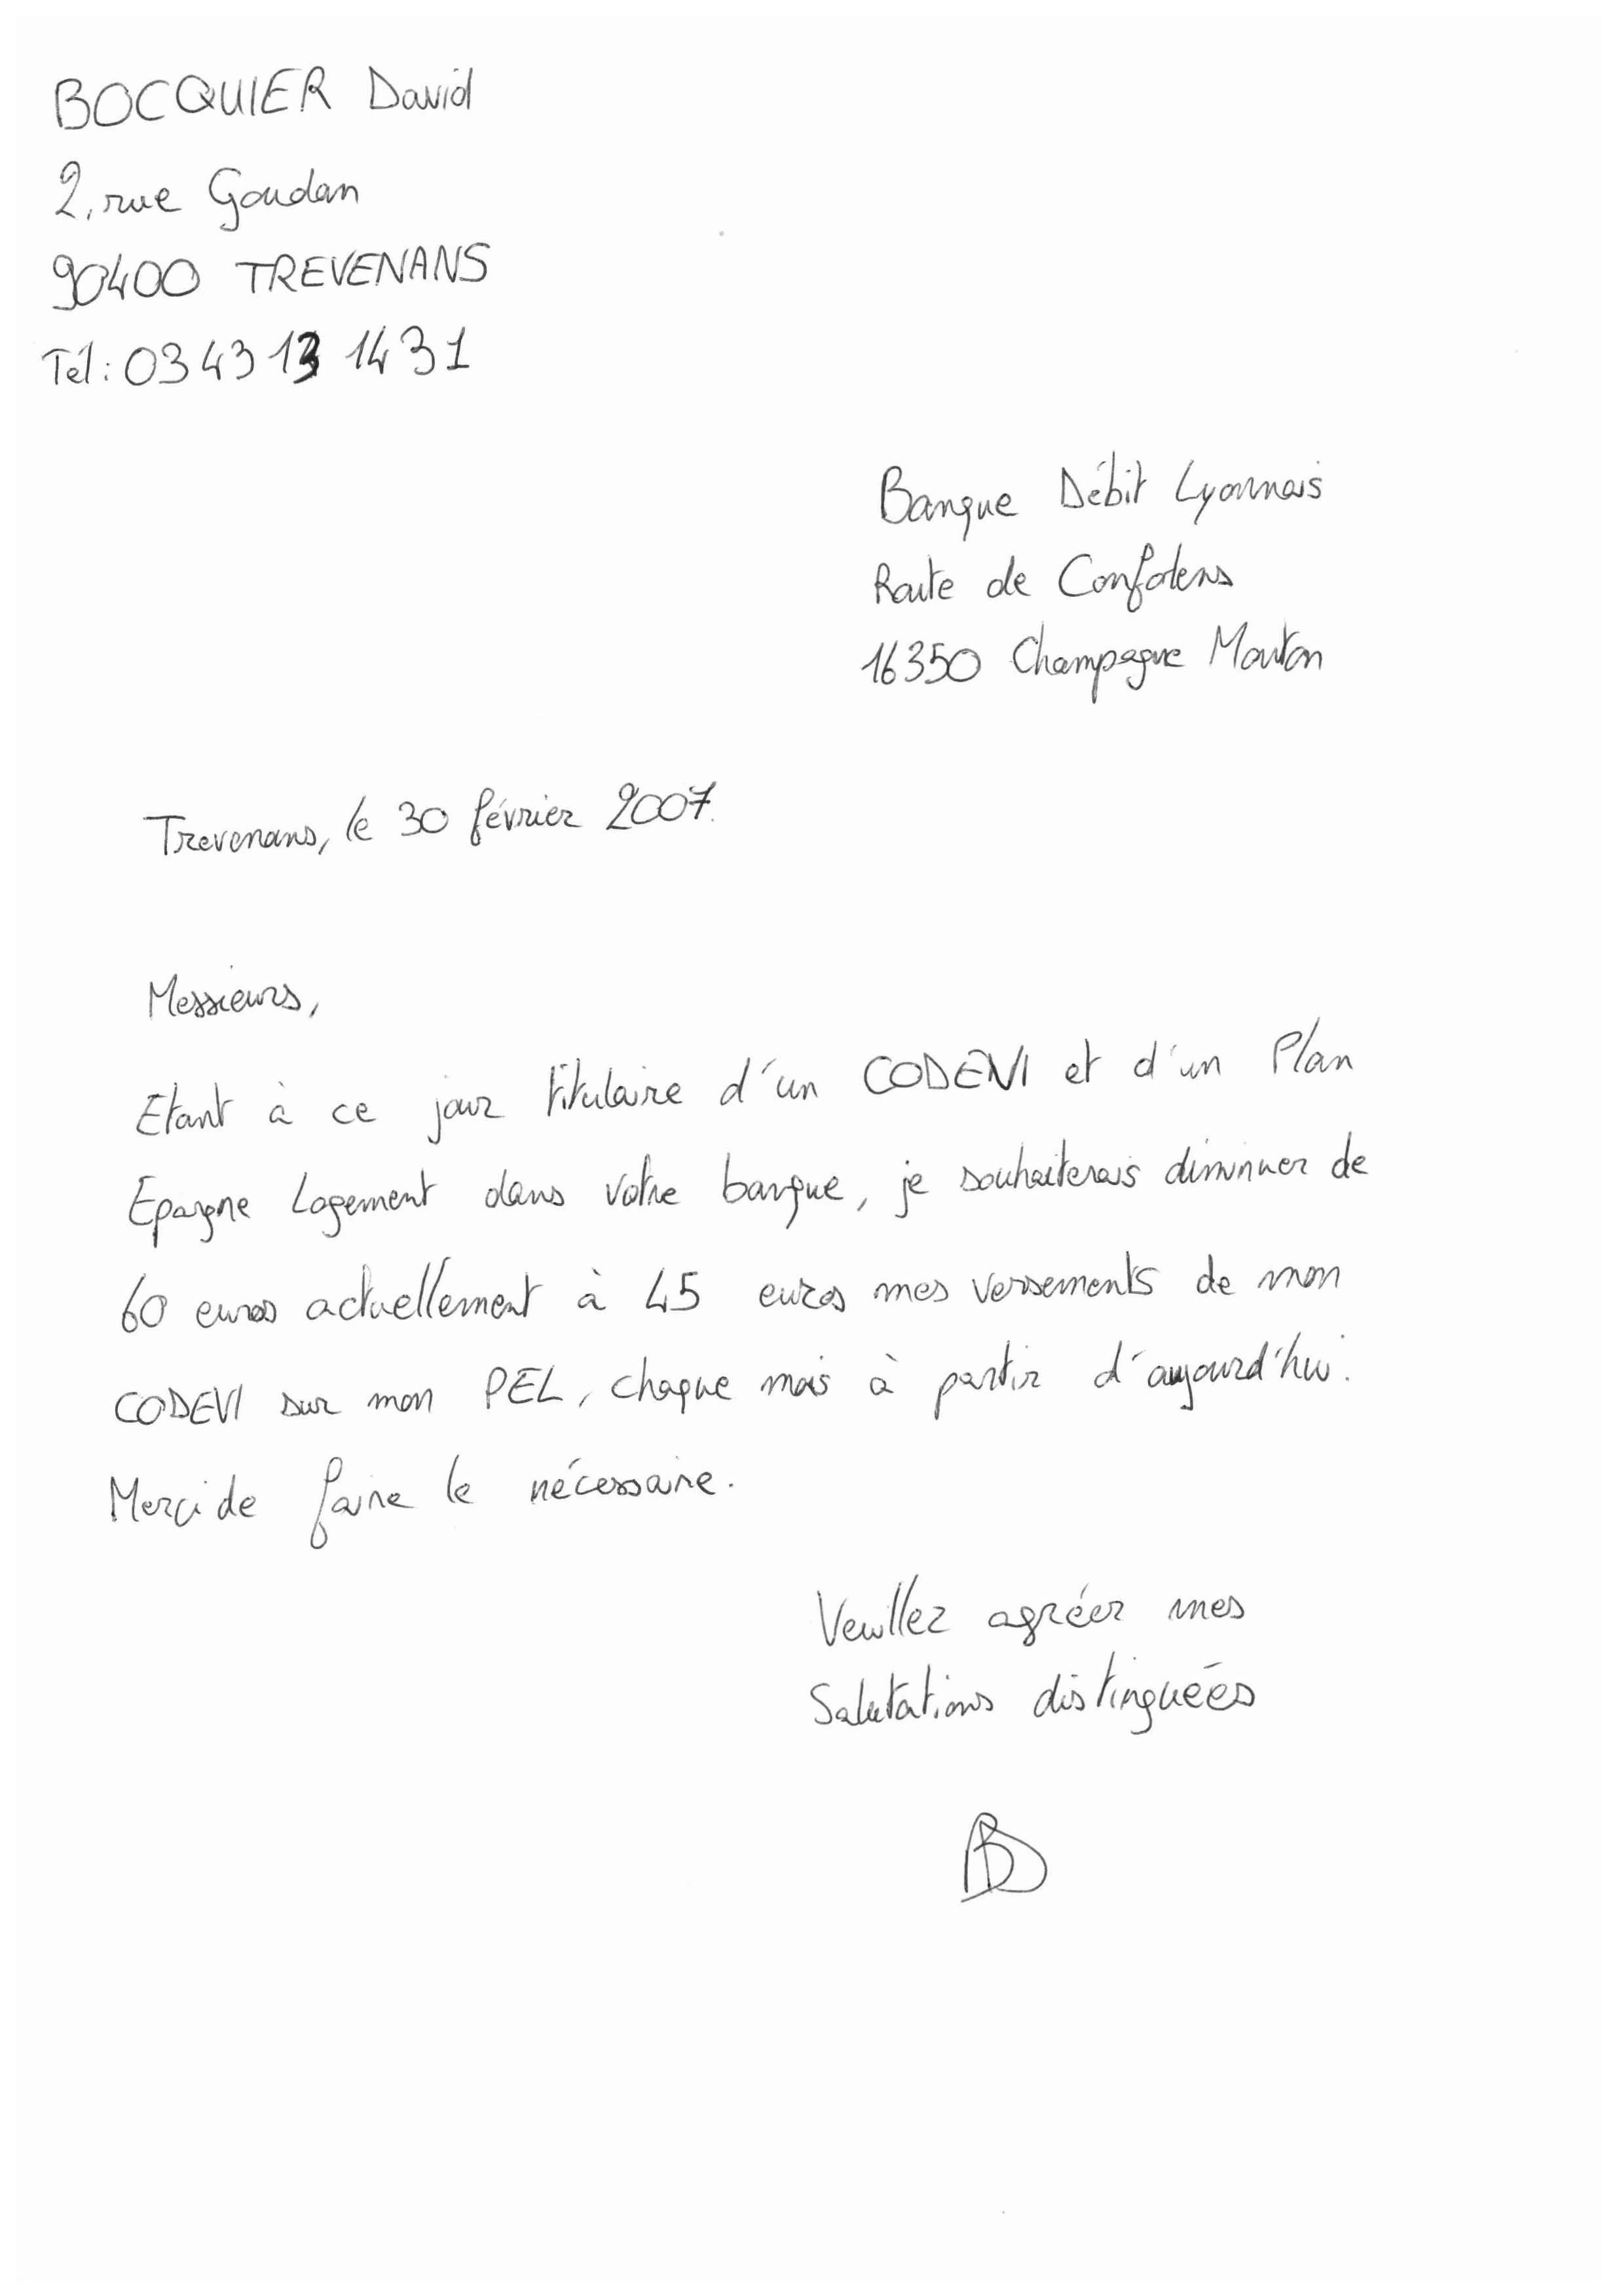 BOCQUIER David
2, rue Goudan
90400 TREVENANS
Tél : 03 43 13 14 31
Banque Débit Lyonnais
Route de Confolens
16350 Champagne Mouton
Trevenans, le 30 février 2007.
Messieurs,
Etant à ce jour titulaire d'un CODEVI et d'un Plan
Epargne Logement dans votre banque, je souhaiterais diminuer de
60 euros actuellement à 45 euros mes versements de mon
CODEVI sur mon PEL, chaque mois à partir d'aujourd'hui.
Merci de faire le nécessaire.
Veuillez agréer mes
Salutations distinguées
BD